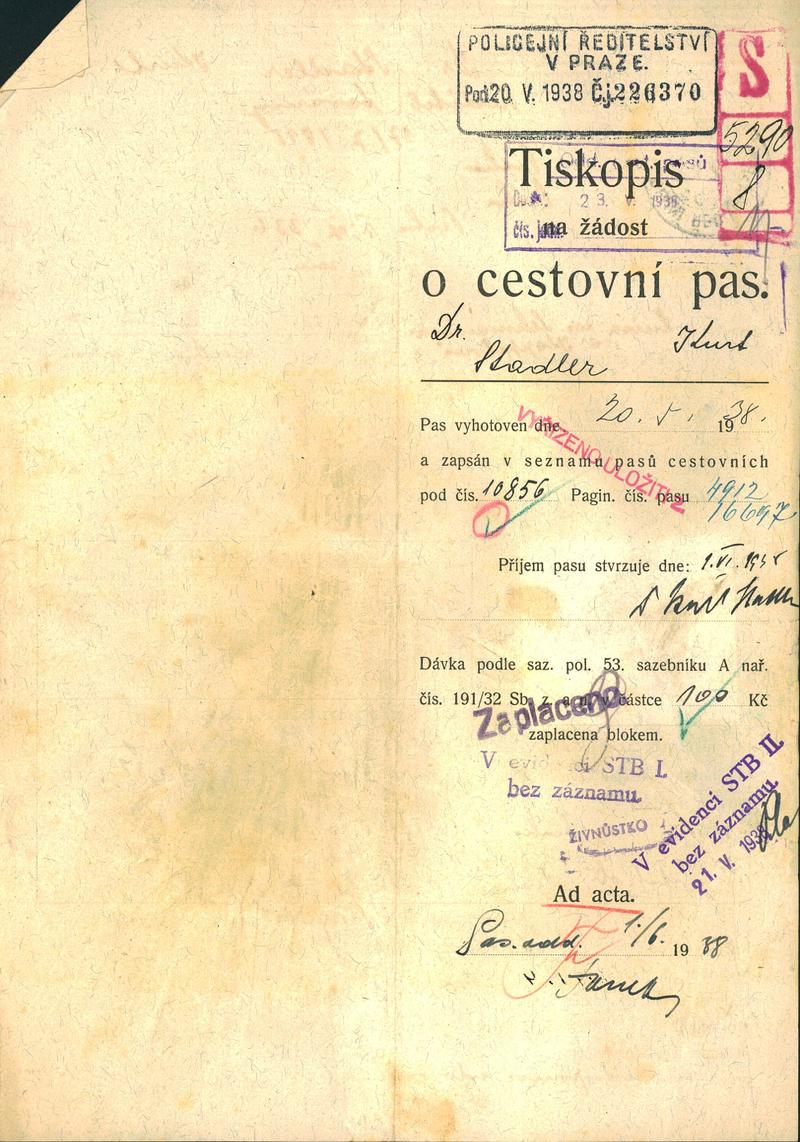 POLICEJNÍ ŘEDITELSTVÍ
V PRAZE.
Pod: 20 V. 1938 Čj. 226370
S
5290
8
Tiskopis
23. V. 1938
čís. jedn.
na žádost
o cestovní pas.
Dr. Kurt
Stadler
Pas vyhotoven dne 20. V. 1938.
VYŘÍZENO ULOŽITI
a zapsán v seznamu pasů cestovních
pod čís. 10856 Pagin. čís. pasu 4912
16697
Příjem pasu stvrzuje dne: 1. VI. 1938
Dr Kurt Stadler
Dávka podle saz. pol. 53. sazebníku A nař.
čís. 191/32 Sb. z. a n. v částce 100 Kč
Zaplaceno
zaplacena blokem.
V evidenci STB I.
bez záznamu.
ŽIVNŮSTKO
V evidenci STB II.
bez záznamu.
21. V. 1938
Ad acta.
Pas. odd. 1/6. 1938